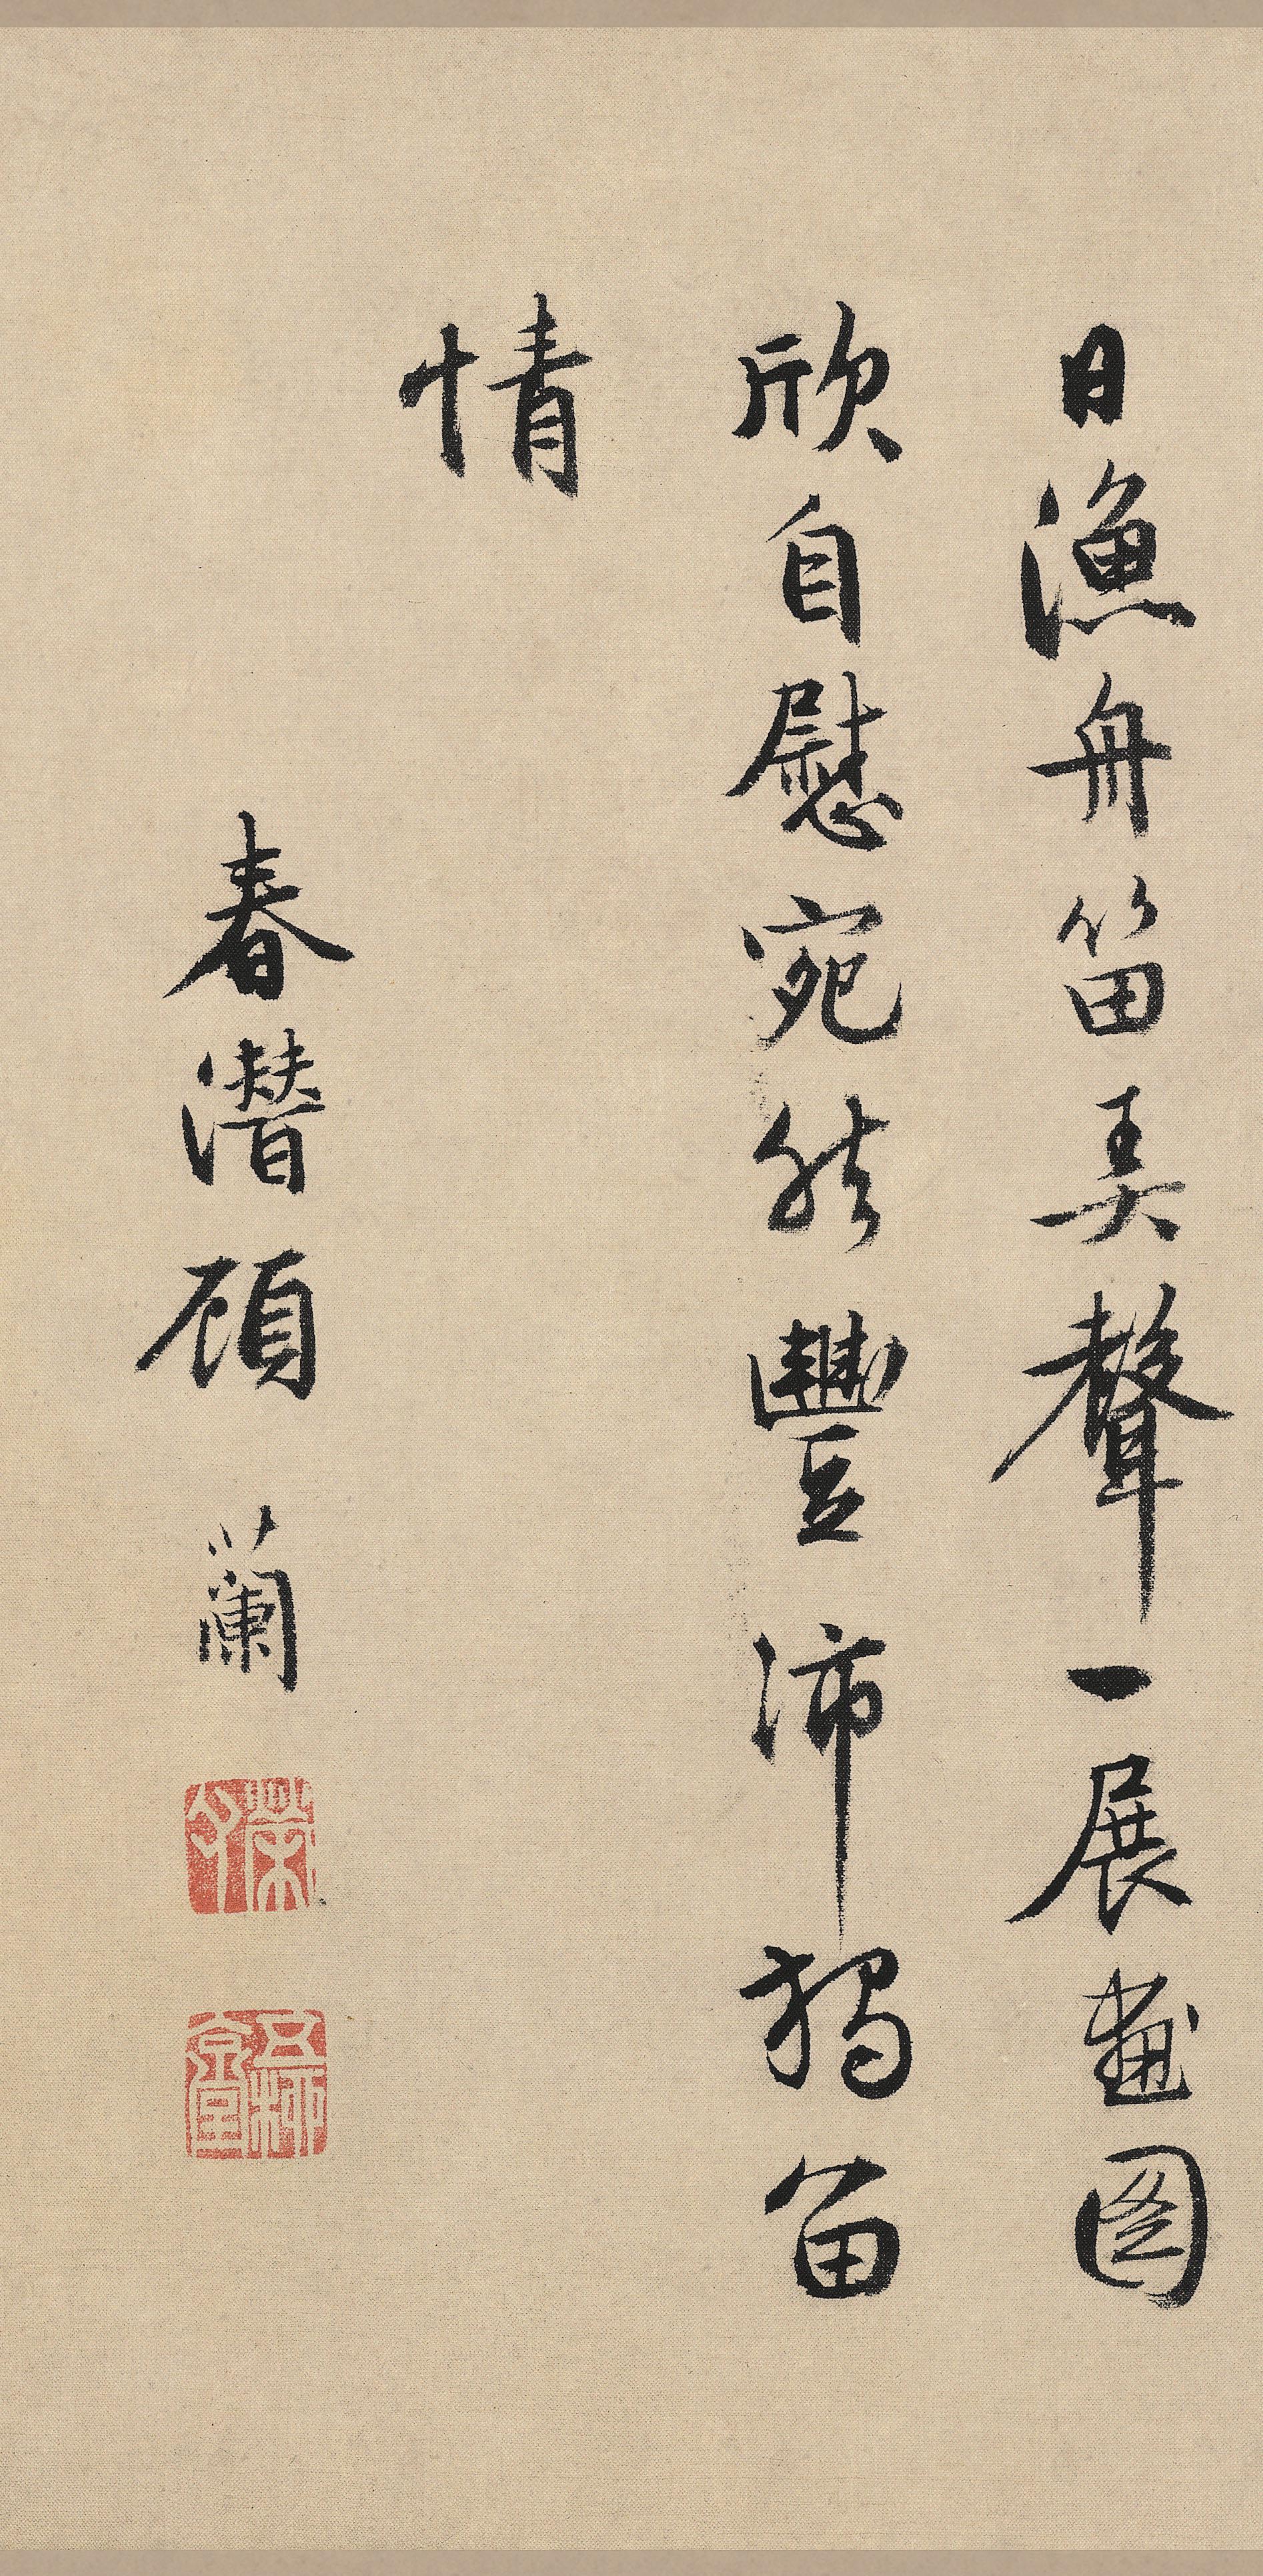 日漁舟笛弄聲一展畫圖
欣自慰宛然豐沛獨留
情
春潛顧蘭